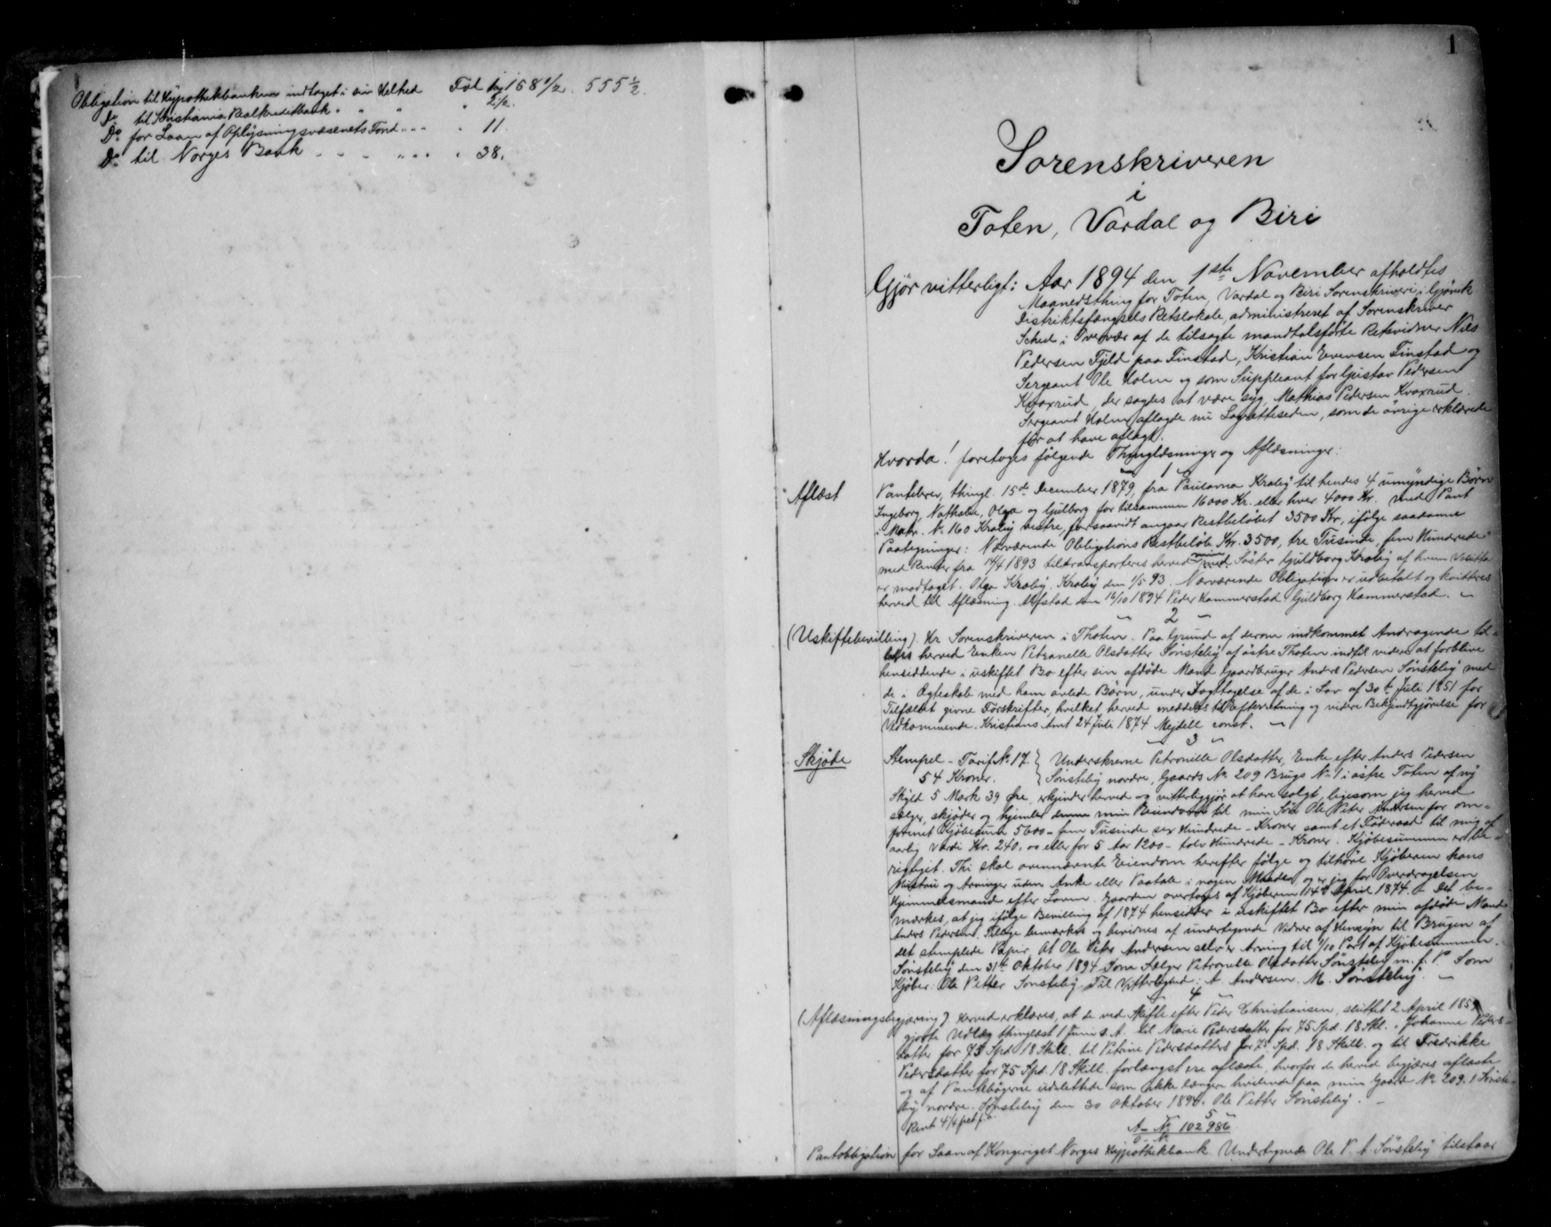 Obligation til Hypothekbanken indtaget i sin Helhed Fol 158 1/2. 555 1/2.
Do til Kristiania Realkreditbank " " " 2 1/2.
Do for Laan af Oplysningsvæsenets Fond " " " 11.
Do til Norges Bank " " " 38.
1
Sorenskriveren
i
Toten, Vardal og Biri
Gjør vitterligt: Aar 1894 den 1ste November afholdtes
Maanedsthing for Toten, Vardal og Biri Sorenskriveri i Gjøvik
Distriktsfængsels Retslokale, administreret af Sorenskriver
Scheel i Overvær af de tilsagte mandtalsførte Retsvidner Nils
Pedersen Fjeld paa Finstad, Kristian Evensen Finstad og
Sergeant Ole Holm og som Suppleant for Gustav Pedersen
Kvaxrud, der sagdes at være syg, Mathias Pedersen Kvaxrud.
Sergeant Holm aflagde nu Lagretteseden, som de øvrige erklærede
før at have aflagt.
Hvorda! foretoges følgende Thinglæsninger og Aflæsninger:
1
Aflæst Pantebrev, thingl. 15de December 1879, fra Paulovna Kraby til hendes 4 umyndige Børn
Ingeborg, Nathalie, Olga og Gulborg for tilsammen 16000 Kr. eller hver 4000 Kr. med Pant
i Matr. No 160 Kraby vestre, forsaavidt angaar Restbeløbet 3500 Kr, ifølge saadanne
Paategninger: Nærværende Obligations Restbeløb Kr. 3500, tre Tusinde, fem Hundrede
med Renter fra 14/4 1893 tiltransporteres herved min Søster Guldborg Kraby af hvem Valuta
er modtaget. Olga Kraby. Kraby den 1/5 93. Nærværende Obligation er udbetalt og kvitteres
herved til Aflæsning. Alfstad den 16/10 1894 Peder Hammerstad Guldborg Hammerstad.
2
(Uskiftebevilling). Hr. Sorenskriveren i Thoten. Paa Grund af derom indkommet Andragende til-
lades herved Enken Petronelle Olsdatter Sønsteby af østre Thoten indtil videre at forblive
hensiddende i uskiftet Bo efter sin afdøde Mand Gaardbruger Anders Pedersen Sønsteby med
de i Ægteskab med ham avlede Børn, under Iagttagelse af de i Lov af 30te Juli 1851 for
Tilfældet givne Forskrifter, hvilket herved meddeles til Efterretning og videre Bekjendtgjørelse for
Vedkommende. Kristians Amt 24 Juli 1874 Mejdell const.
3
Skjøde Stempel-Tarif No 17 } Underskrevne Petronille Olsdatter, Enke efter Anders Pedersen
54 Kroner. } Sønsteby nordre, Gaards No 209 Brugs No 1 i østre Toten af ny
Skyld 5 Mark 39 Øre, erkjender herved og vitterliggjør at have solgt, ligesom jeg herved
sælger, skjøder og hjemler denne min Eiendom til min Søn Ole Peter Andersen for om-
forenet Kjøbesum 5600 - fem Tusinde sex Hundrede - Kroner samt et Føderaad til mig af
aarlig Værdi Kr. 240.00 eller for 5 Aar 1200 - tolv Hundrede - Kroner. Kjøbesummen er be-
rigtiget. Thi skal ovennævnte Eiendom herefter følge og tilhøre Kjøberen hans
Hustru og Arvinger uden Anke eller Paatale i nogen Maade og er jeg for Overdragelsen
Hjemmelsmand efter Loven. Gaarden overtoges af Kjøberen 14de April 1874. Det be-
mærkes, at jeg ifølge Bevilling af 1874 hensidder i uskiftet Bo efter min afdøde Mand
Anders Pedersen. Tillige bemærkes og bevidnes af undertegnede Vidner af Hensyn til Brugen af
det stemplede Papir, at Ole Peter Andersen selv er Arving til 1/10 Part af Kjøbesummen.
Sønsteby den 31te Oktober 1894. Som Sælger Petronelle Olsdatter Sønsteby m. f. P. Som
Kjøber: Ole Petter Sønsteby. Til Vitterlighed: A. Andersen. M. Sønsteby.
4
(Aflæsningsbegjæring) Herved erklæres, at de ved Skifte efter Peder Christiansen, sluttet 2 April 185
gjorte Udlæg thinglæst 1 Juni s. A. til Marie Pedersdatter for 75 Spd. 18 Skl. Johanne Peders-
datter for 75 Spd 18 Skill. til Petrine Pedersdatter for 75 Spd. 18 Skill. og til Fredrikke
Pedersdatter for 75 Spd. 18 Skill. forlængst ere aflæste, hvorfor de herved begjæres aflæste
og af Pantebøgerne udslettede som ikke længer hvilende paa min Gaard No 209. 1
nordre. Sønsteby den 30 Oktober 1894. Ole Petter Sønsteby.
Rent 4 1/4 pct. p. a.
5
A- No 102986
Pantobligation for Laan af Kongeriget Norges Hypothekbank. Undertegnede Ole P. A. Sønsteby tilstaar